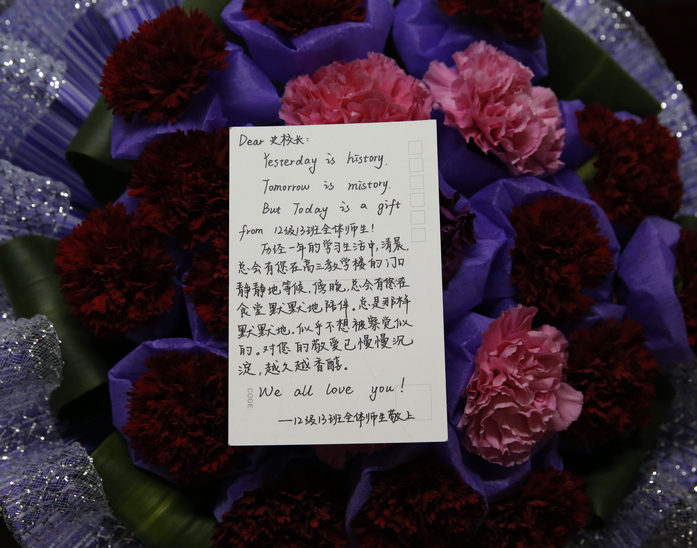 Dear 史校长:
Yesterday is history.
Tomorrow is mistory.
But Today is a gift
from 12级13班全体师生!
历经一年的学习生活中,清晨,
总会有您在高三教学楼的门口
静静地等候,傍晚,总会有您在
食堂默默地陪伴。总是那样
默默地,似乎不想被察觉似
的。对您的敬爱已慢慢沉
淀,越久越香醇。
We all love you!
—12级13班全体师生敬上
CODE